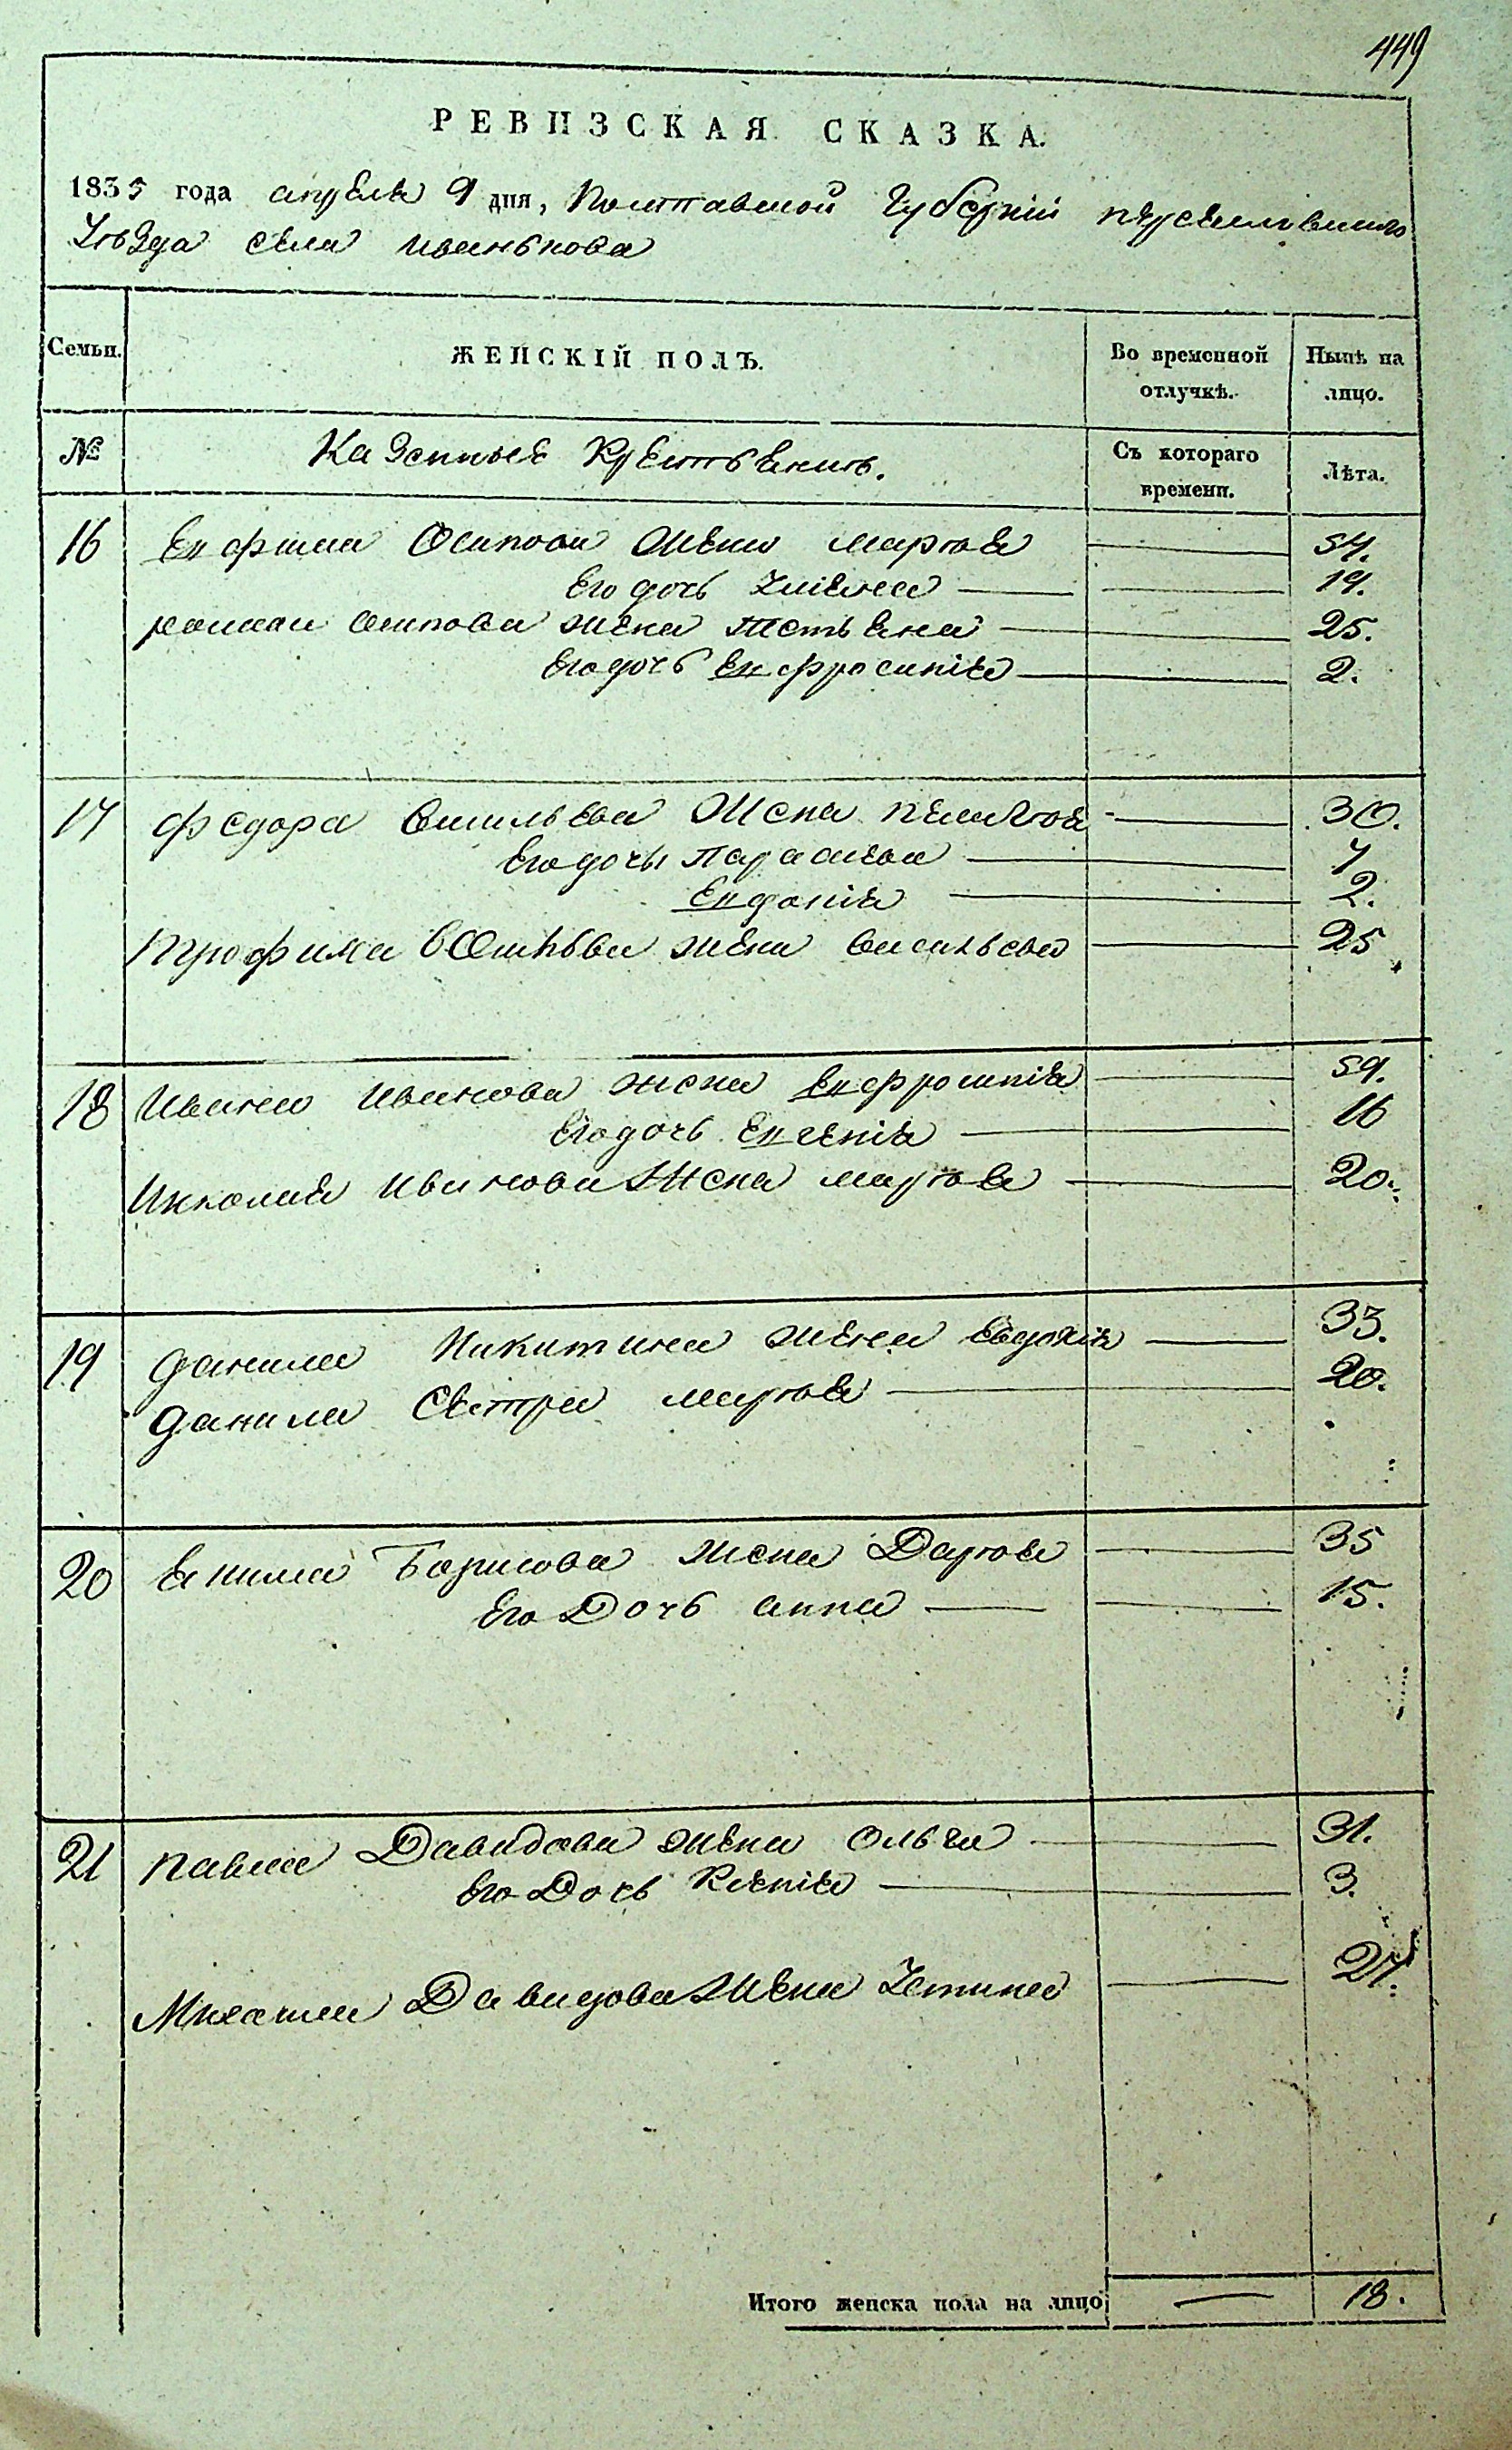 449
РЕВИЗСКАЯ СКАЗКА.
1835 года апреля 9 дня, Полтавской Губернии переяславского
Уезда села иванькова
Семьи. ЖЕНСКІЙ ПОЛЪ. Во временной отлучкѣ. Нынѣ на лицо.
№ Казенные Крестьяние. Съ котораго времени. Лѣта.
16 Евфима Осипова жена марфа 54.
Его дочь 19.
романа осипова жена татьяна 25.
Его дочь Евфросинія 2.
17 федора васильева жена пелагея 30.
Его дочь параскева 7
Евдокія 2.
трофима жена васильева 25
18 Ивана иванова жена Евфросинія 59.
Его дочь Евгенія 16
Николая иванова жена марфа 20.
19 данила Никитина жена евдокія 33.
данила сестра марфа 20.
20 Екима Борисова жена Дарья 35
Его Дочь анна 15.
21 павла Давидова жена ольга 31.
Его Дочь Ксенія 3.
Михаила Давидова жена Устина 27.
Итого женска пола на лицо 18.